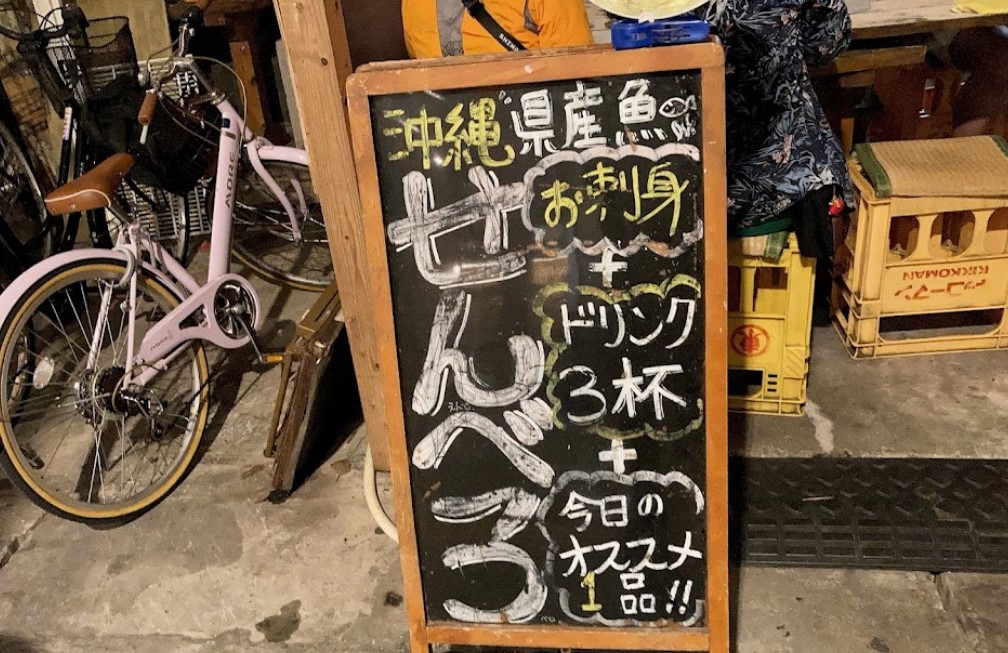 沖縄県産魚
せんべろ
お刺身
+
ドリンク
3杯
+
今日の
オススメ
1品!!
MORE
キッコーマン
KIKKOMAN